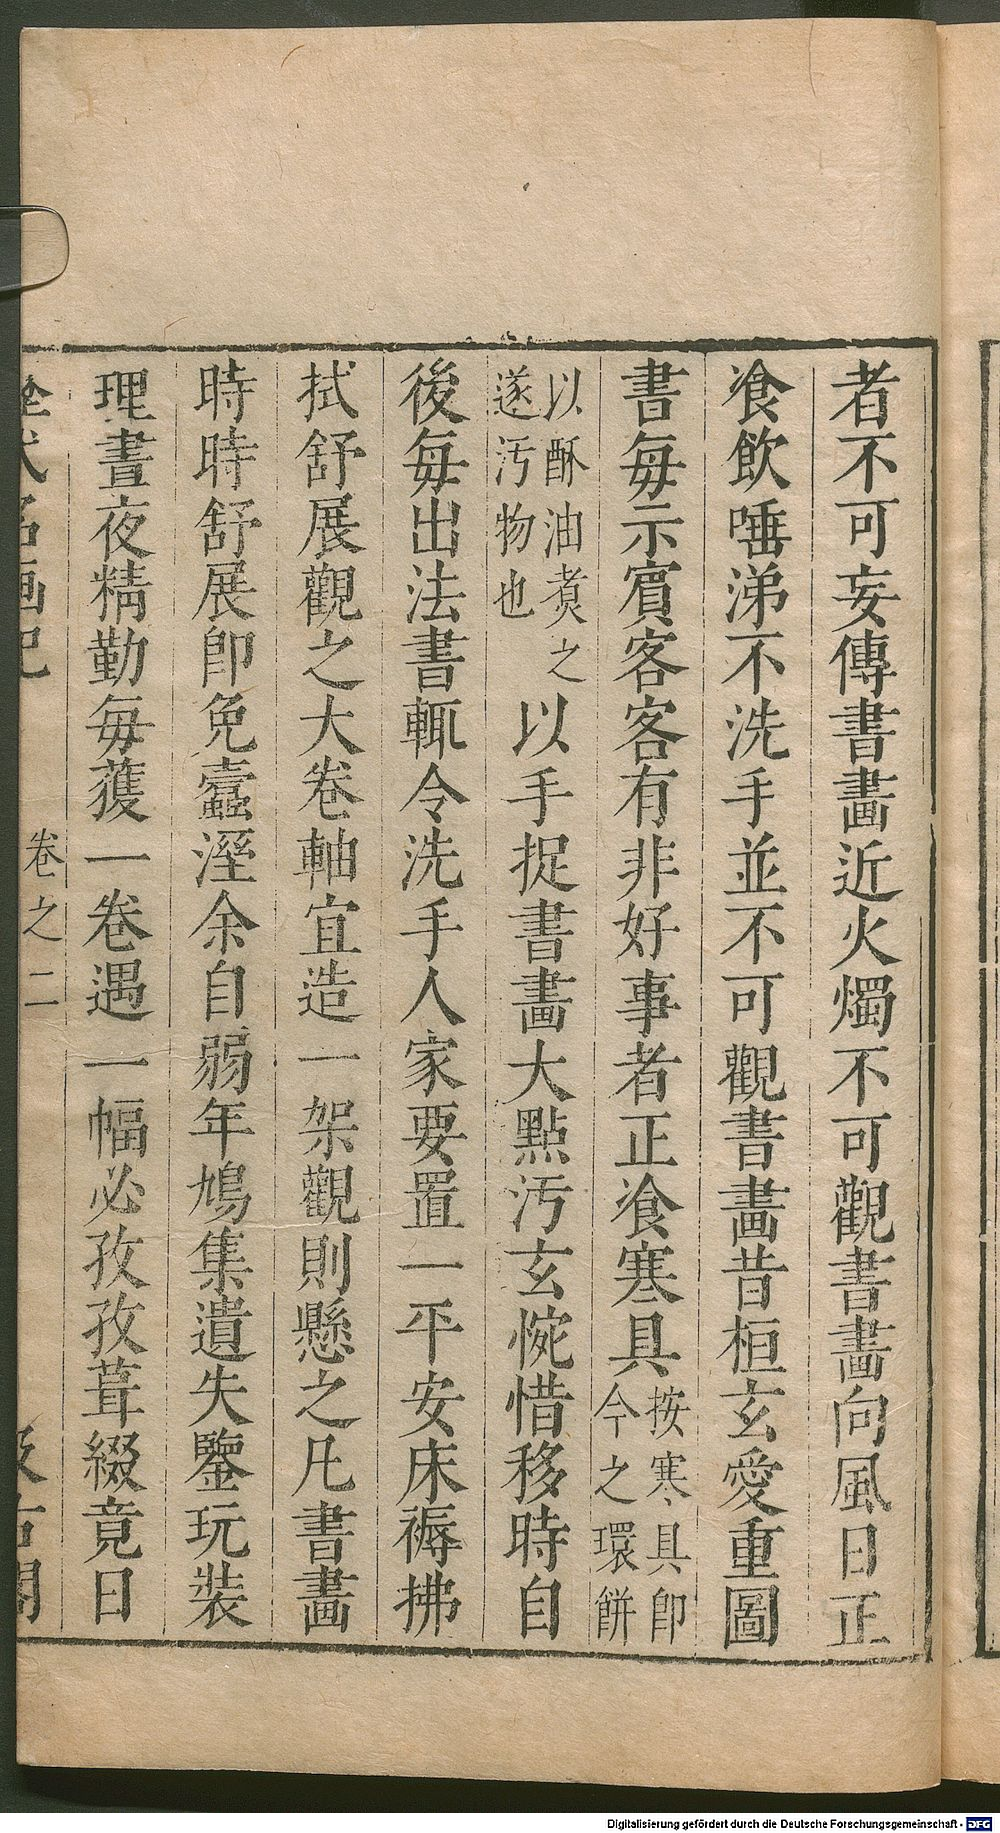 者不可妄傳書畫近火燭不可觀書畫向風日正
飡飲唾涕不洗手並不可觀書畫昔桓玄愛重圖
書每示賓客客有非好事者正飡寒具按寒具即
今之環餅
以酥油煑之
遂汚物也
以手捉書畫大點汚玄惋惜移時自
後每出法書輒令洗手人家要置一平安床褥拂
拭舒展觀之大卷軸宜造一架觀則懸之凡書畫
時時舒展即免蠹溼余自弱年鳩集遺失鑒玩裝
理晝夜精勤每獲一卷遇一幅必孜孜葺綴竟日
歷代名画記 卷之二 汲古閣
Digitalisierung gefördert durch die Deutsche Forschungsgemeinschaft - DFG